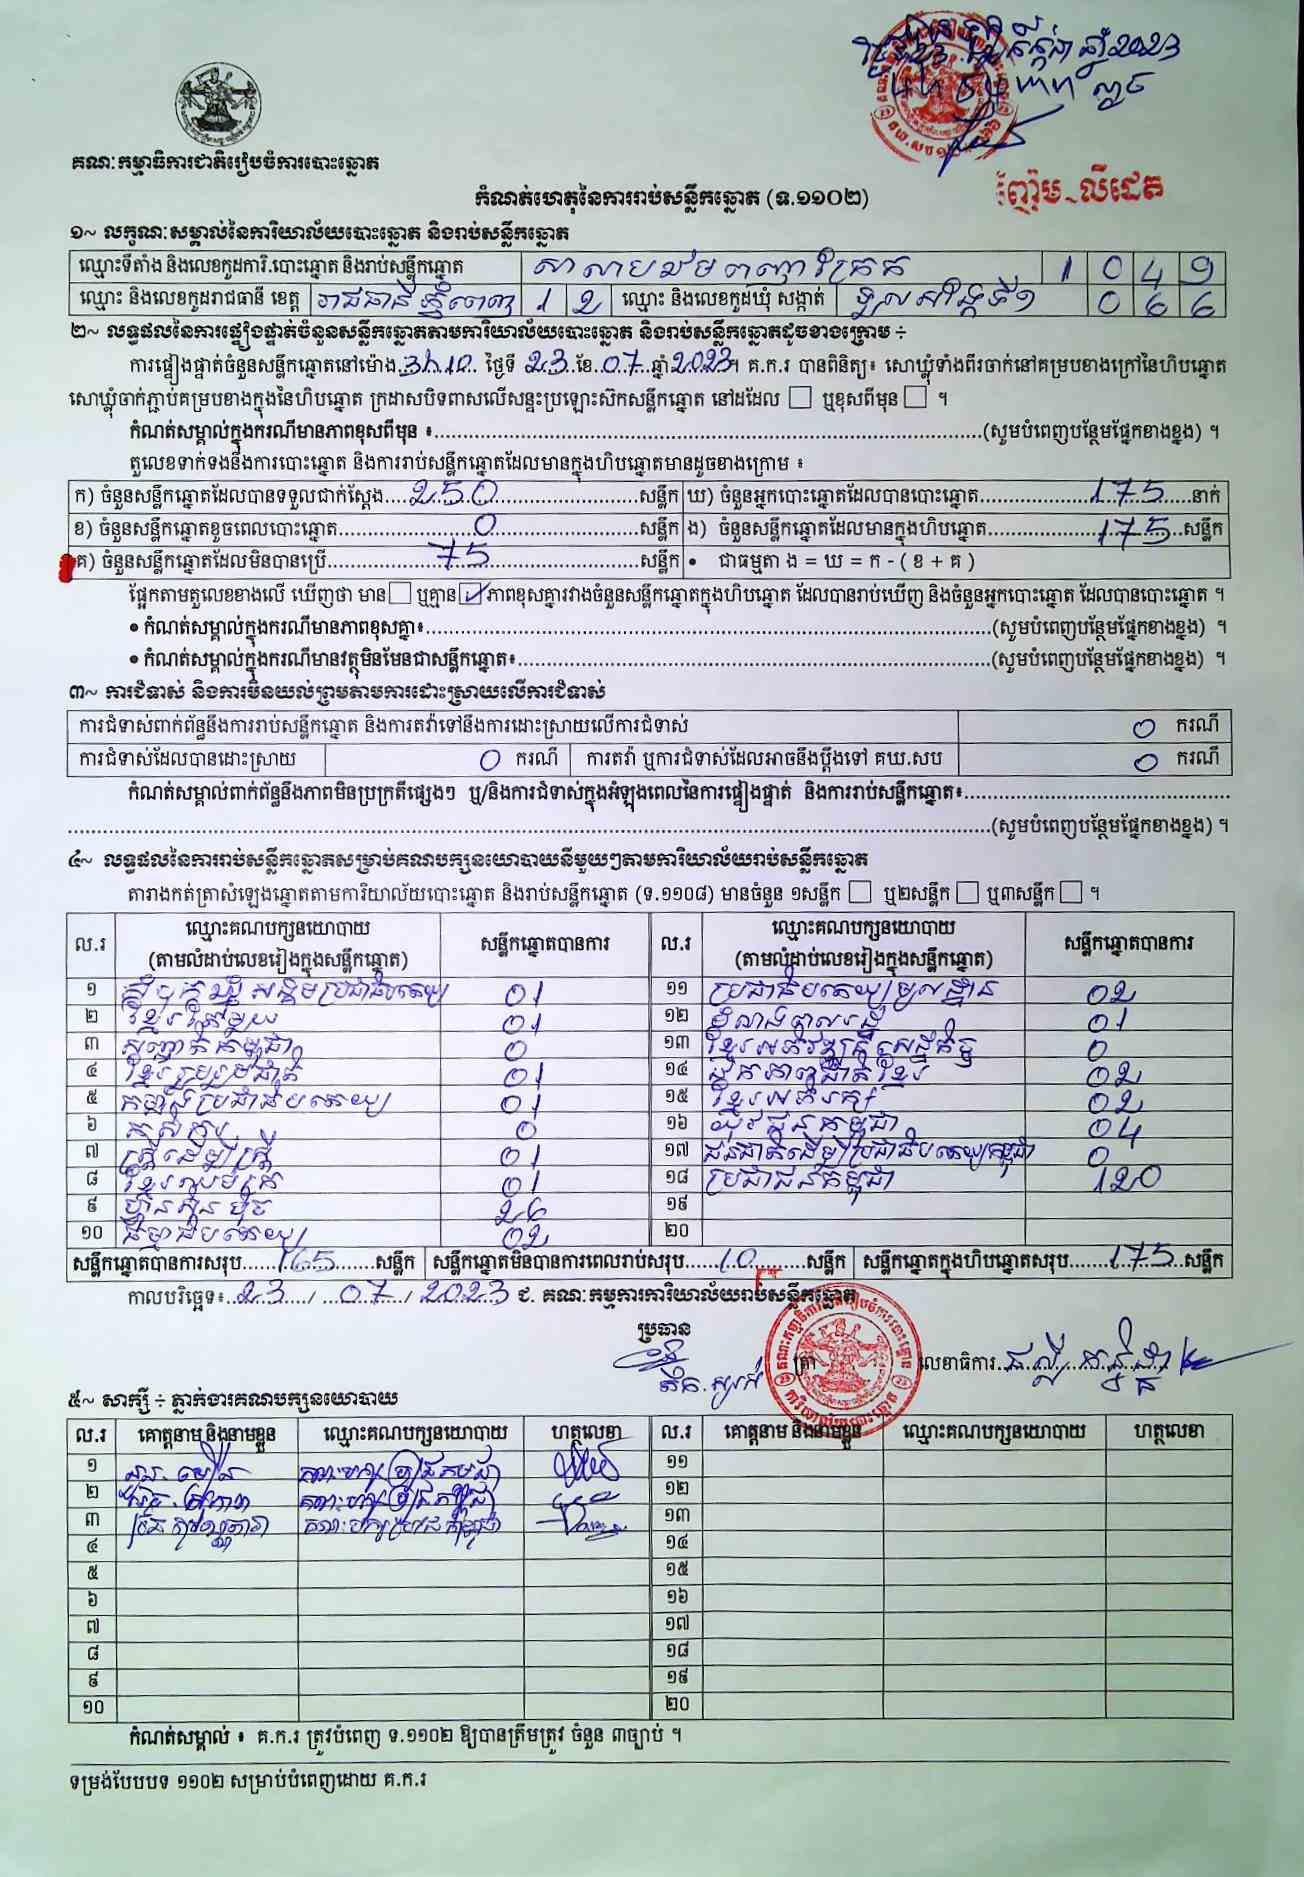 គណៈកម្មាធិការជាតិរៀបចំការបោះឆ្នោត
កំណត់ហេតុនៃការរាប់សន្លឹកឆ្នោត (ទ.១១០២)
ញ៉ែម លីដេត
១~ លក្ខណៈសម្គាល់នៃការិយាល័យបោះឆ្នោត និងរាប់សន្លឹកឆ្នោត
ឈ្មោះទីតាំង និងលេខកូដការិ.បោះឆ្នោត និងរាប់សន្លឹកឆ្នោត 1 0 4 9
ឈ្មោះ និងលេខកូដរាជធានី ខេត្ត រាជធានីភ្នំពេញ 1 2 ឈ្មោះ និងលេខកូដឃុំ សង្កាត់ ទួលសង្កែទី១ 0 6 6
២~ លទ្ធផលនៃការផ្ទៀងផ្ទាត់ចំនួនសន្លឹកឆ្នោតតាមការិយាល័យបោះឆ្នោត និងរាប់សន្លឹកឆ្នោតដូចខាងក្រោម ÷
ការផ្ទៀងផ្ទាត់ចំនួនសន្លឹកឆ្នោតនៅម៉ោង 3h10 ថ្ងៃទី 23 ខែ 07 ឆ្នាំ 2023។ គ.ក.រ បានពិនិត្យ៖ សោឃ្លុំទាំងពីរចាក់នៅគម្របខាងក្រៅនៃហិបឆ្នោត
សោឃ្លុំចាក់ភ្ជាប់គម្របខាងក្នុងនៃហិបឆ្នោត ក្រដាសបិទពាសលើសន្ទះប្រឡោះស៊កសន្លឹកឆ្នោត នៅដដែល ☐ ឬខុសពីមុន ☐ ។
កំណត់សម្គាល់ក្នុងករណីមានភាពខុសពីមុន ៖ (សូមបំពេញបន្ថែមផ្នែកខាងខ្នង) ។
តួលេខទាក់ទងនឹងការបោះឆ្នោត និងការរាប់សន្លឹកឆ្នោតដែលមានក្នុងហិបឆ្នោតមានដូចខាងក្រោម ៖
ក) ចំនួនសន្លឹកឆ្នោតដែលបានទទួលជាក់ស្តែង 250 សន្លឹក ឃ) ចំនួនអ្នកបោះឆ្នោតដែលបានបោះឆ្នោត 175 នាក់
ខ) ចំនួនសន្លឹកឆ្នោតខូចពេលបោះឆ្នោត 0 សន្លឹក ង) ចំនួនសន្លឹកឆ្នោតដែលមានក្នុងហិបឆ្នោត 175 សន្លឹក
គ) ចំនួនសន្លឹកឆ្នោតដែលមិនបានប្រើ 75 សន្លឹក • ជាធម្មតា ង = ឃ = ក - ( ខ + គ )
ផ្អែកតាមតួលេខខាងលើ ឃើញថា មាន ☐ ឬគ្មាន ☑ ភាពខុសគ្នារវាងចំនួនសន្លឹកឆ្នោតក្នុងហិបឆ្នោត ដែលបានរាប់ឃើញ និងចំនួនអ្នកបោះឆ្នោត ដែលបានបោះឆ្នោត ។
• កំណត់សម្គាល់ក្នុងករណីមានភាពខុសគ្នា៖ (សូមបំពេញបន្ថែមផ្នែកខាងខ្នង) ។
• កំណត់សម្គាល់ក្នុងករណីមានវត្ថុមិនមែនជាសន្លឹកឆ្នោត៖ (សូមបំពេញបន្ថែមផ្នែកខាងខ្នង) ។
៣~ ការជំទាស់ និងការមិនយល់ព្រមតាមការដោះស្រាយលើការជំទាស់
ការជំទាស់ពាក់ព័ន្ធនឹងការរាប់សន្លឹកឆ្នោត និងការតវ៉ាទៅនឹងការដោះស្រាយលើការជំទាស់ 0 ករណី
ការជំទាស់ដែលបានដោះស្រាយ 0 ករណី ការតវ៉ា ឬការជំទាស់ដែលអាចនឹងប្តឹងទៅ គឃ.សប 0 ករណី
កំណត់សម្គាល់ពាក់ព័ន្ធនឹងភាពមិនប្រក្រតីផ្សេងៗ ឬ/និងការជំទាស់ក្នុងអំឡុងពេលនៃការផ្ទៀងផ្ទាត់ និងការរាប់សន្លឹកឆ្នោត៖
(សូមបំពេញបន្ថែមផ្នែកខាងខ្នង) ។
៤~ លទ្ធផលនៃការរាប់សន្លឹកឆ្នោតសម្រាប់គណបក្សនយោបាយនីមួយៗតាមការិយាល័យរាប់សន្លឹកឆ្នោត
តារាងកត់ត្រាសំឡេងឆ្នោតតាមការិយាល័យបោះឆ្នោត និងរាប់សន្លឹកឆ្នោត (ទ.១១០៨) មានចំនួន ១សន្លឹក ☐ ឬ២សន្លឹក ☐ ឬ៣សន្លឹក ☐ ។
ល.រ ឈ្មោះគណបក្សនយោបាយ (តាមលំដាប់លេខរៀងក្នុងសន្លឹកឆ្នោត) សន្លឹកឆ្នោតបានការ ល.រ ឈ្មោះគណបក្សនយោបាយ (តាមលំដាប់លេខរៀងក្នុងសន្លឹកឆ្នោត) សន្លឹកឆ្នោតបានការ
១ 01 ១១ ប្រជាធិបតេយ្យមូលដ្ឋាន 02
២ ខ្មែរតែមួយ 01 ១២ 01
៣ 0 ១៣ 0
៤ ខ្មែររួបរួមជាតិ 01 ១៤ 02
៥ កម្លាំងប្រជាធិបតេយ្យ 01 ១៥ ខ្មែរអភិរក្ស 02
៦ កសិករ 0 ១៦ យុវជនកម្ពុជា 04
៧ ស្ត្រីដើម្បីស្ត្រី 01 ១៧ ជនជាតិដើមប្រជាធិបតេយ្យកម្ពុជា 0
៨ 01 ១៨ ប្រជាជនកម្ពុជា 120
៩ ហ្វ៊ុនស៊ិនប៉ិច 26 ១៩
១០ ធម្មាធិបតេយ្យ 02 ២០
សន្លឹកឆ្នោតបានការសរុប 165 សន្លឹក សន្លឹកឆ្នោតមិនបានការពេលរាប់សរុប 10 សន្លឹក សន្លឹកឆ្នោតក្នុងហិបឆ្នោតសរុប 175 សន្លឹក
កាលបរិច្ឆេទ៖ 23 / 07 / 2023 ជ. គណៈកម្មការការិយាល័យរាប់សន្លឹកឆ្នោត
ប្រធាន
ត្រា លេខាធិការ
៥~ សាក្សី ÷ ភ្នាក់ងារគណបក្សនយោបាយ
ល.រ គោត្តនាម និងនាមខ្លួន ឈ្មោះគណបក្សនយោបាយ ហត្ថលេខា ល.រ គោត្តនាម និងនាមខ្លួន ឈ្មោះគណបក្សនយោបាយ ហត្ថលេខា
១ គណបក្សប្រជាជនកម្ពុជា ១១
២ គណបក្សប្រជាជនកម្ពុជា ១២
៣ គណបក្សប្រជាជនកម្ពុជា ១៣
៤ ១៤
៥ ១៥
៦ ១៦
៧ ១៧
៨ ១៨
៩ ១៩
១០ ២០
កំណត់សម្គាល់ ៖ គ.ក.រ ត្រូវបំពេញ ទ.១១០២ ឱ្យបានត្រឹមត្រូវ ចំនួន ៣ច្បាប់ ។
ទម្រង់បែបបទ ១១០២ សម្រាប់បំពេញដោយ គ.ក.រ